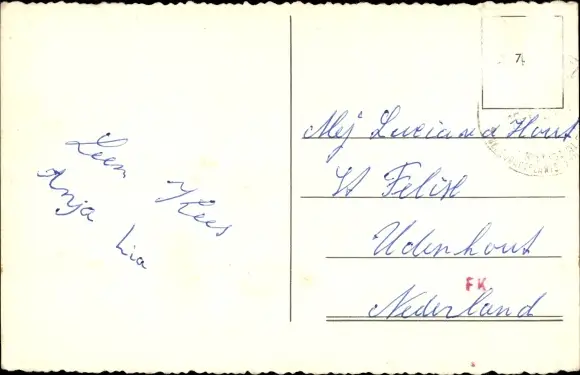 Leen Kees
Anja Lia
7L
Mej Lucia v d Hout
St Felix
Udenhout
FK
Nederland